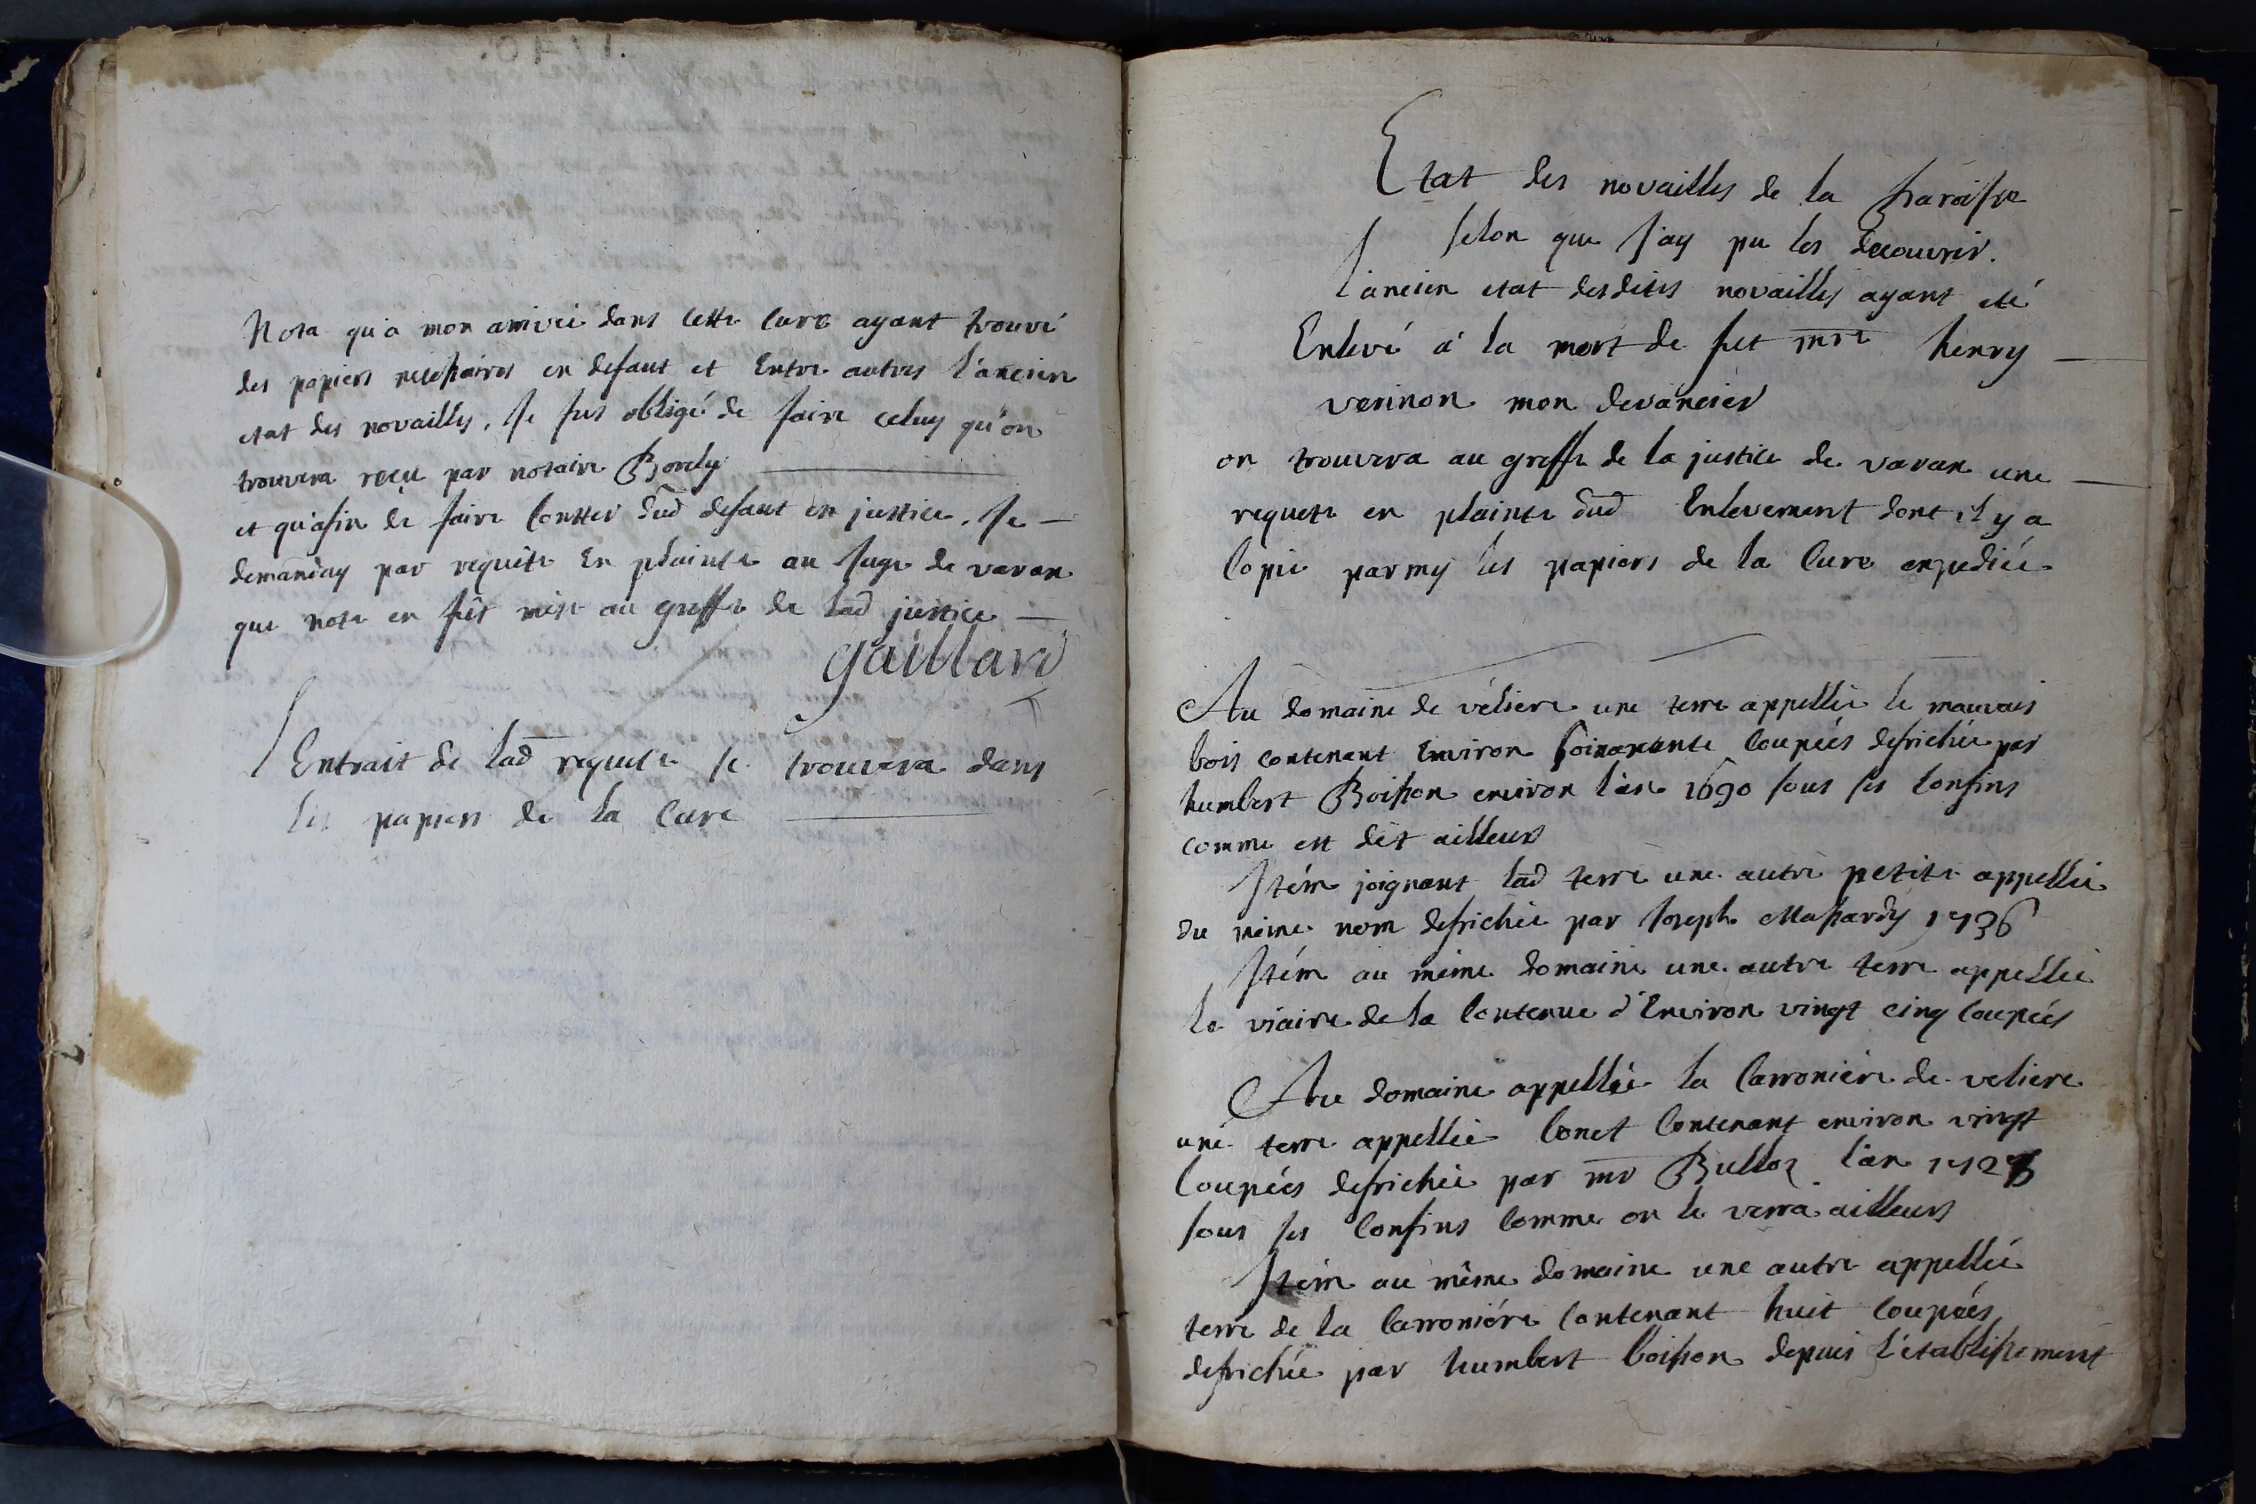 Nota qu'a mon arrivée dans cette cure ayant trouvé
des papiers necessaires en defaut et entre autres l'ancien
etat des novailles, Je fus obligé de faire celuy qu'on
trouvera reçu par notaire Borely
et qu'afin de faire conster dud defaut en justice, Je
demanday par requete en plainte au Juge de varan
que note en fût mise au greffe de lad justice
gaillard
L'Extrait de lad requete se trouvera dans
les papiers de la cure
Etat des novailles de la paroisse
selon que J'ay pu les decouvrir.
l'ancien etat desdites novailles ayant eté
Enlevé à la mort de fet mre henry
verinon mon devancier
on trouvera au greffe de la justice de varan une
requete en plainte dud Enlevement dont il y a
copie parmy les papiers de la Cure expediée
Au domaine de véliere une terre appellée le mauvais
bois contenant Environ soixante Coupées defrichée par
humbert Boisson environ l'an 1690 sous ses confins
comme est dit ailleurs
Item joignant lad terre une autre petite appellée
du même nom defrichée par Joseph Massardy 1736
Item au même domaine une autre terre appellée
la viaire de la Contenue d'Environ vingt cinq Coupées
Au domaine appellée la Carroniere de veliere
une terre appellée Conet Contenant environ vingt
Coupées defrichée par mr Bulloz l'an
sous ses Confins Comme on le verra ailleurs
Item au même domaine une autre appellée
terre de la Carroniére Contenant huit Coupées
defrichée par humbert boisson depuis l'établissement